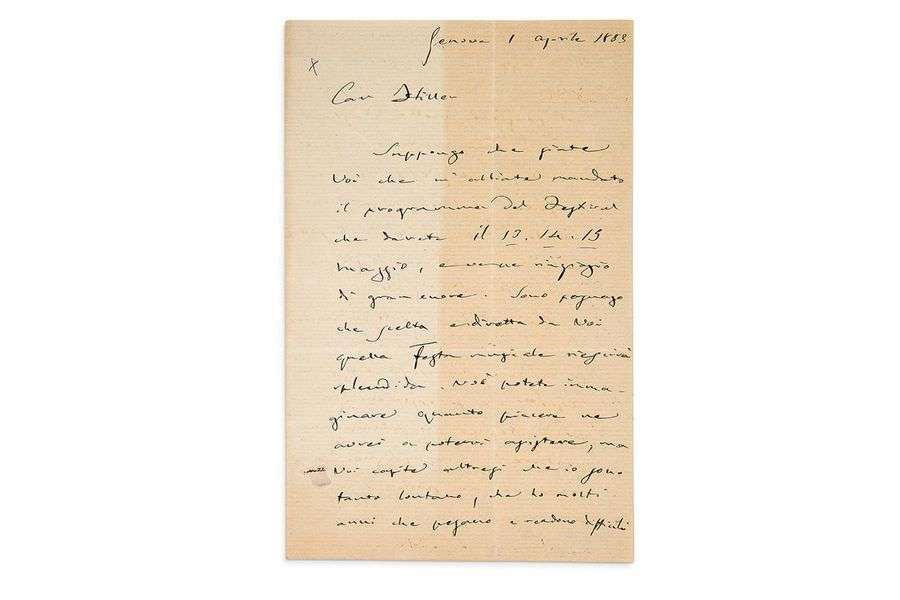 Genova 1 aprile 1883
Car Hiller
Suppongo che siate
Voi che m'abbiate mandato
il programma del Festival
che darete il 13. 14. 15
Maggio, e ve ne ringrazio
di gran cuore. Sono
che scelta e diretta da Voi
quella Festa musicale riescirà
splendida. Voi potete imma-
ginare quanto piacere ne
avrei a potervi assistere, ma
Voi capite altresì che io sono
tanto lontano, che ho molti
anni che pesano e rendono difficili